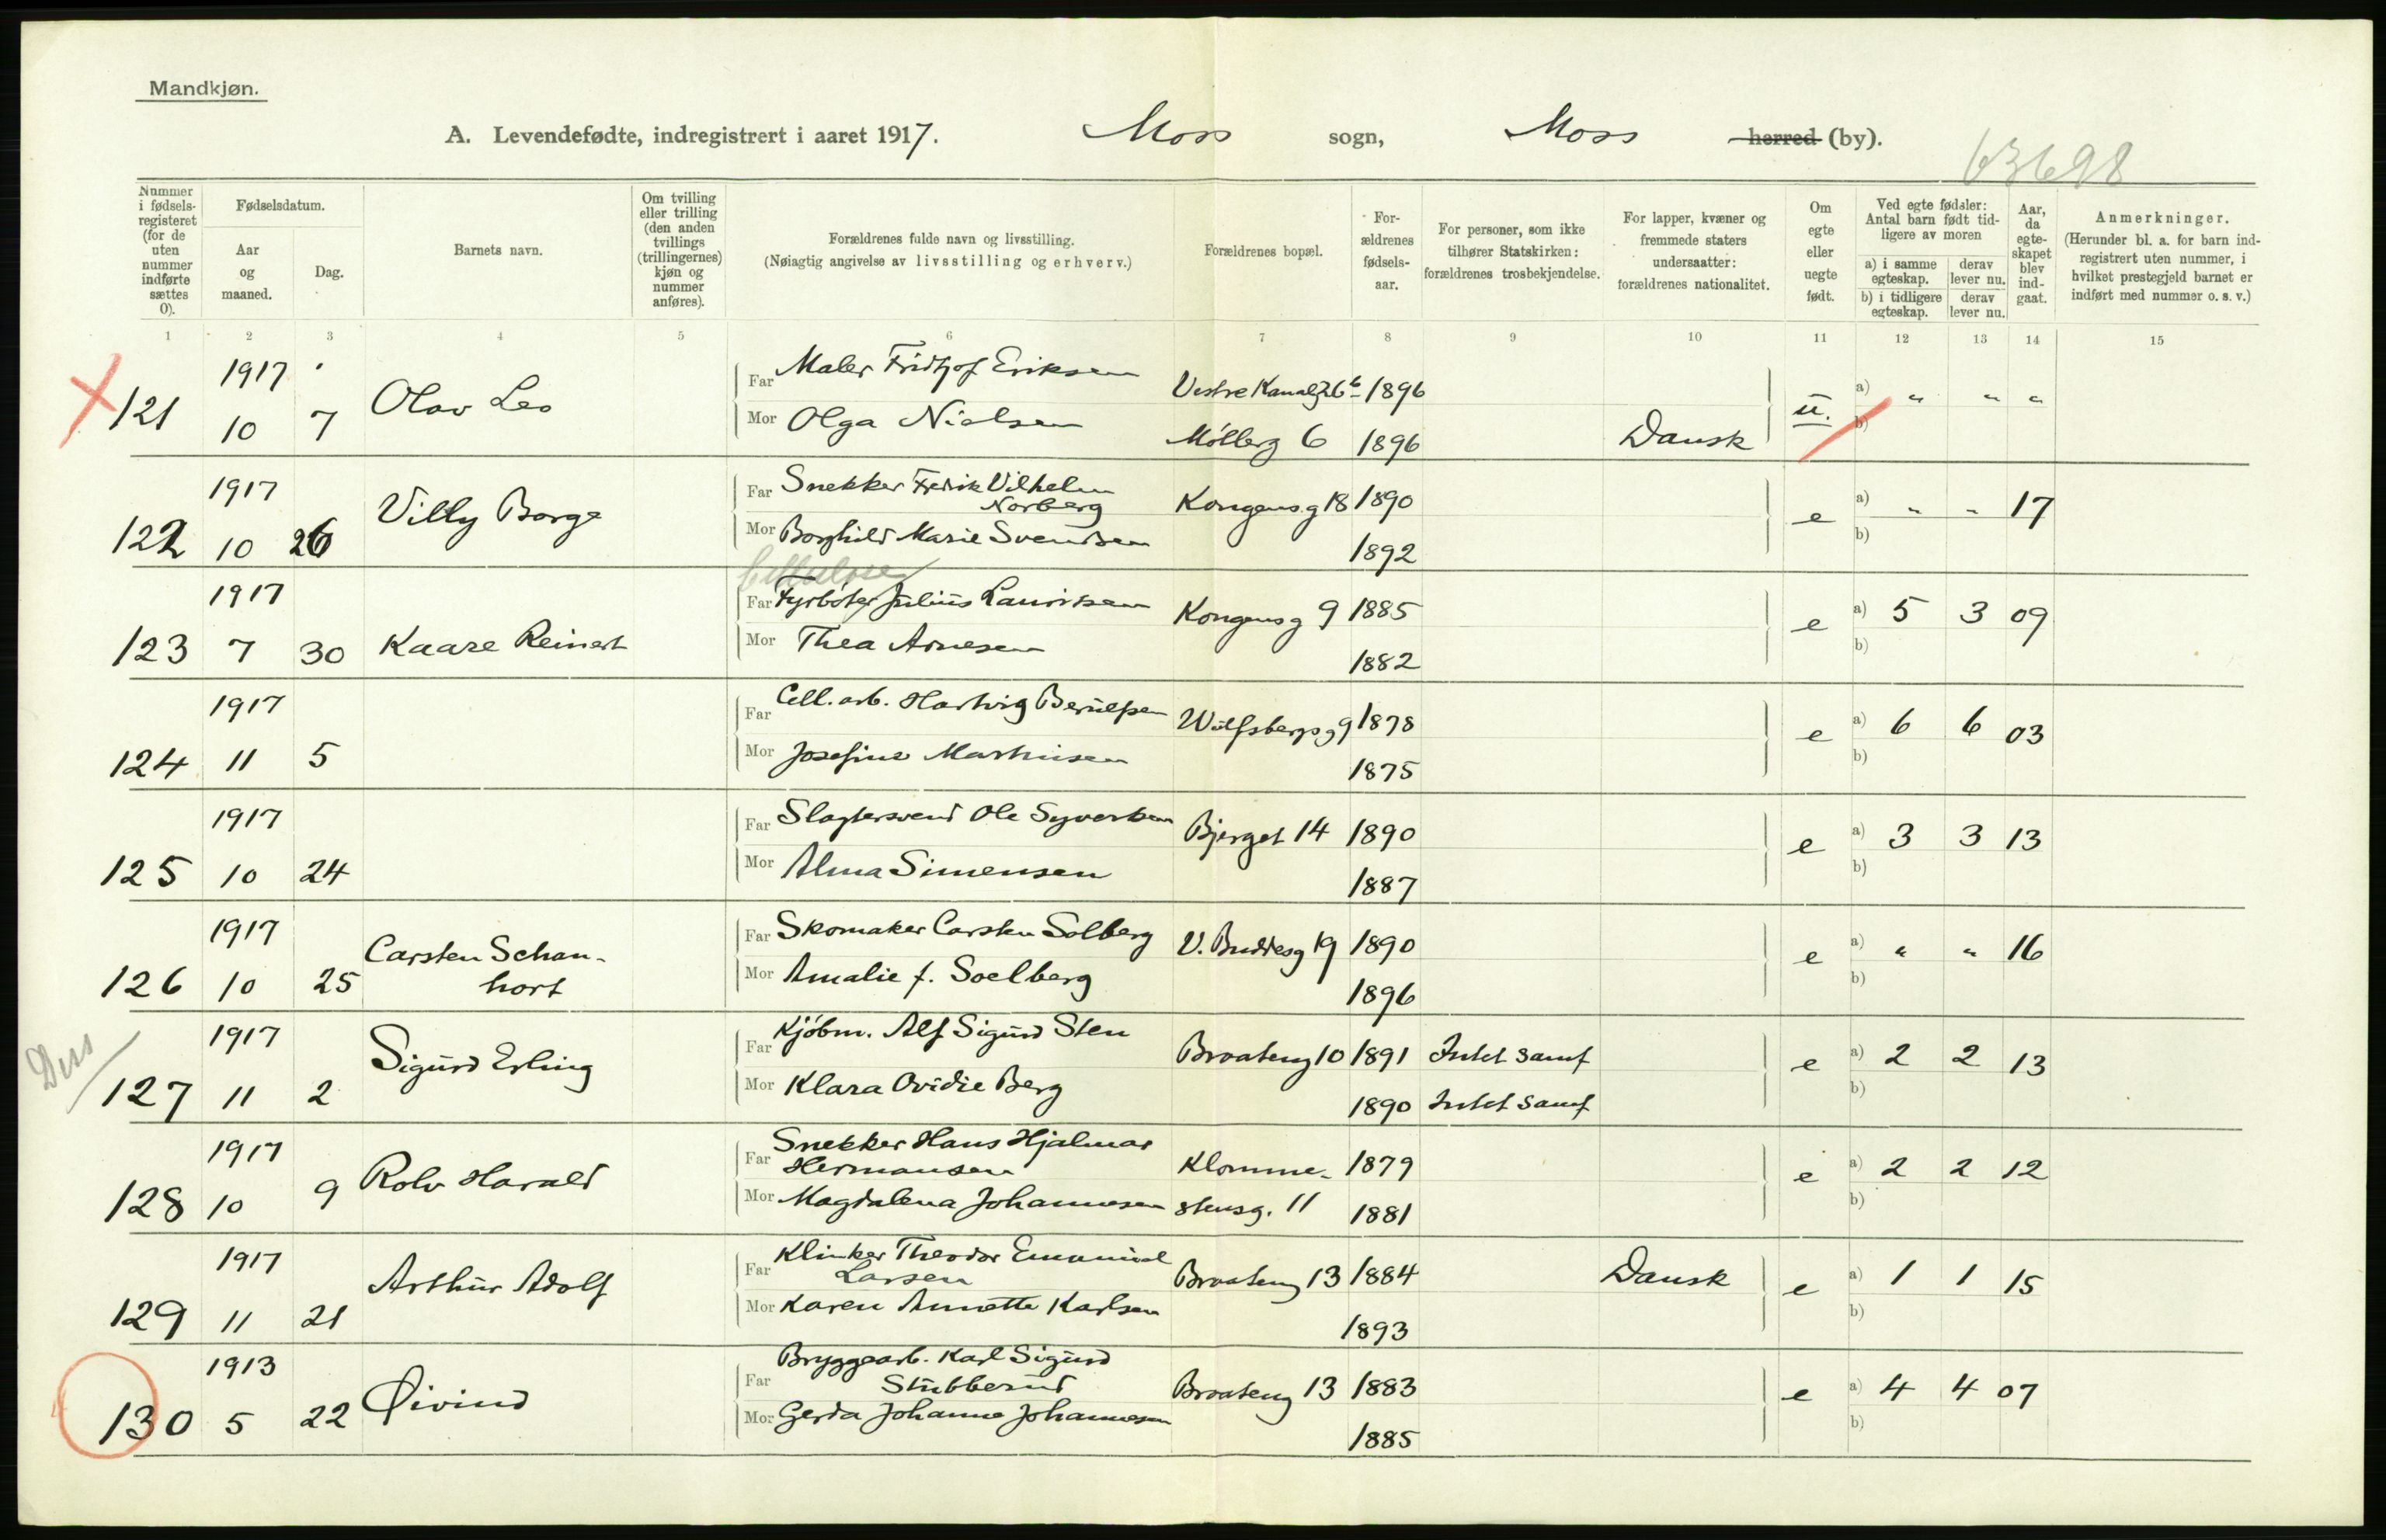 Mandkjøn.
A. Levendefødte, indregistrert i aaret 1917. Moss sogn, Moss herred (by).
63698
Nummer i fødsels-registeret (for de uten nummer indførte sættes 0).
Fødselsdatum.
Aar og maaned.
Dag.
Barnets navn.
Om tvilling eller trilling (den anden tvillings (trillingernes) kjøn og nummer anføres).
Forældrenes fulde navn og livsstilling.
(Nøiagtig angivelse av livsstilling og erhverv.)
Forældrenes bopæl.
For-ældrenes fødsels-aar.
For personer, som ikke tilhører Statskirken: forældrenes trosbekjendelse.
For lapper, kvæner og fremmede staters undersaatter: forældrenes nationalitet.
Om egte eller uegte født.
Ved egte fødsler: Antal barn født tid-ligere av moren
a) i samme egteskap.
derav lever nu.
b) i tidligere egteskap.
derav lever nu.
Aar, da egte-skapet blev ind-gaat.
Anmerkninger.
(Herunder bl. a. for barn ind-registrert uten nummer, i hvilket prestegjeld barnet er indført med nummer o. s. v.)
1 2 3 4 5 6 7 8 9 10 11 12 13 14 15
1917
121 10 7 Olav Leo
Far Maler Fridtjof Eriksen Vestre Kanalg 26b 1896
Mor Olga Nielsen Møllerg 6 1896 Dansk
u. a) " " "
b)
1917
122 10 26 Villy Borge
Far Snekker Fredrik Vilhelm
Norberg Kongensg 18 1890
Mor Borghild Marie Svendsen 1892
e a) " " 17
b)
Cellulose
1917
123 7 30 Kaare Reinert
Far Fyrbøter Julius Lauritsen Kongensg 9 1885
Mor Thea Arnesen 1882
e a) 5 3 09
b)
1917
124 11 5
Far Cell. arb. Hartvig Berulfsen Wulfsbergsg 9 1878
Mor Josefine Marthisen 1875
e a) 6 6 03
b)
1917
125 10 24
Far Slagtersvend Ole Syvertsen Bjerget 14 1890
Mor Alma Simensen 1887
e a) 3 3 13
b)
1917
126 10 25 Carsten Schan-
hort
Far Skomaker Carsten Solberg V. Buddesg 19 1890
Mor Amalie f. Soelberg 1896
e a) " " 16
b)
Diss
1917
127 11 2 Sigurd Erling
Far Kjøbm. Alf Sigurd Sten Braateng 10 1891 Intet samf
Mor Klara Ovidie Berg 1890 Intet samf
e a) 2 2 13
b)
1917
128 10 9 Rolv Harald
Far Snekker Hans Hjalmar
Hermansen Klomme- 1879
Mor Magdalena Johannesen stensg. 11 1881
e a) 2 2 12
b)
1917
129 11 21 Arthur Adolf
Far Klinker Theodor Emanuel
Larsen Braateng 13 1884 Dansk
Mor Karen Annette Karlsen 1893
e a) 1 1 15
b)
1913
130 5 22 Øivind
Far Bryggearb. Karl Sigurd
Stubberud Braateng 13 1883
Mor Gerda Johanne Johannesen 1885
e a) 4 4 07
b)